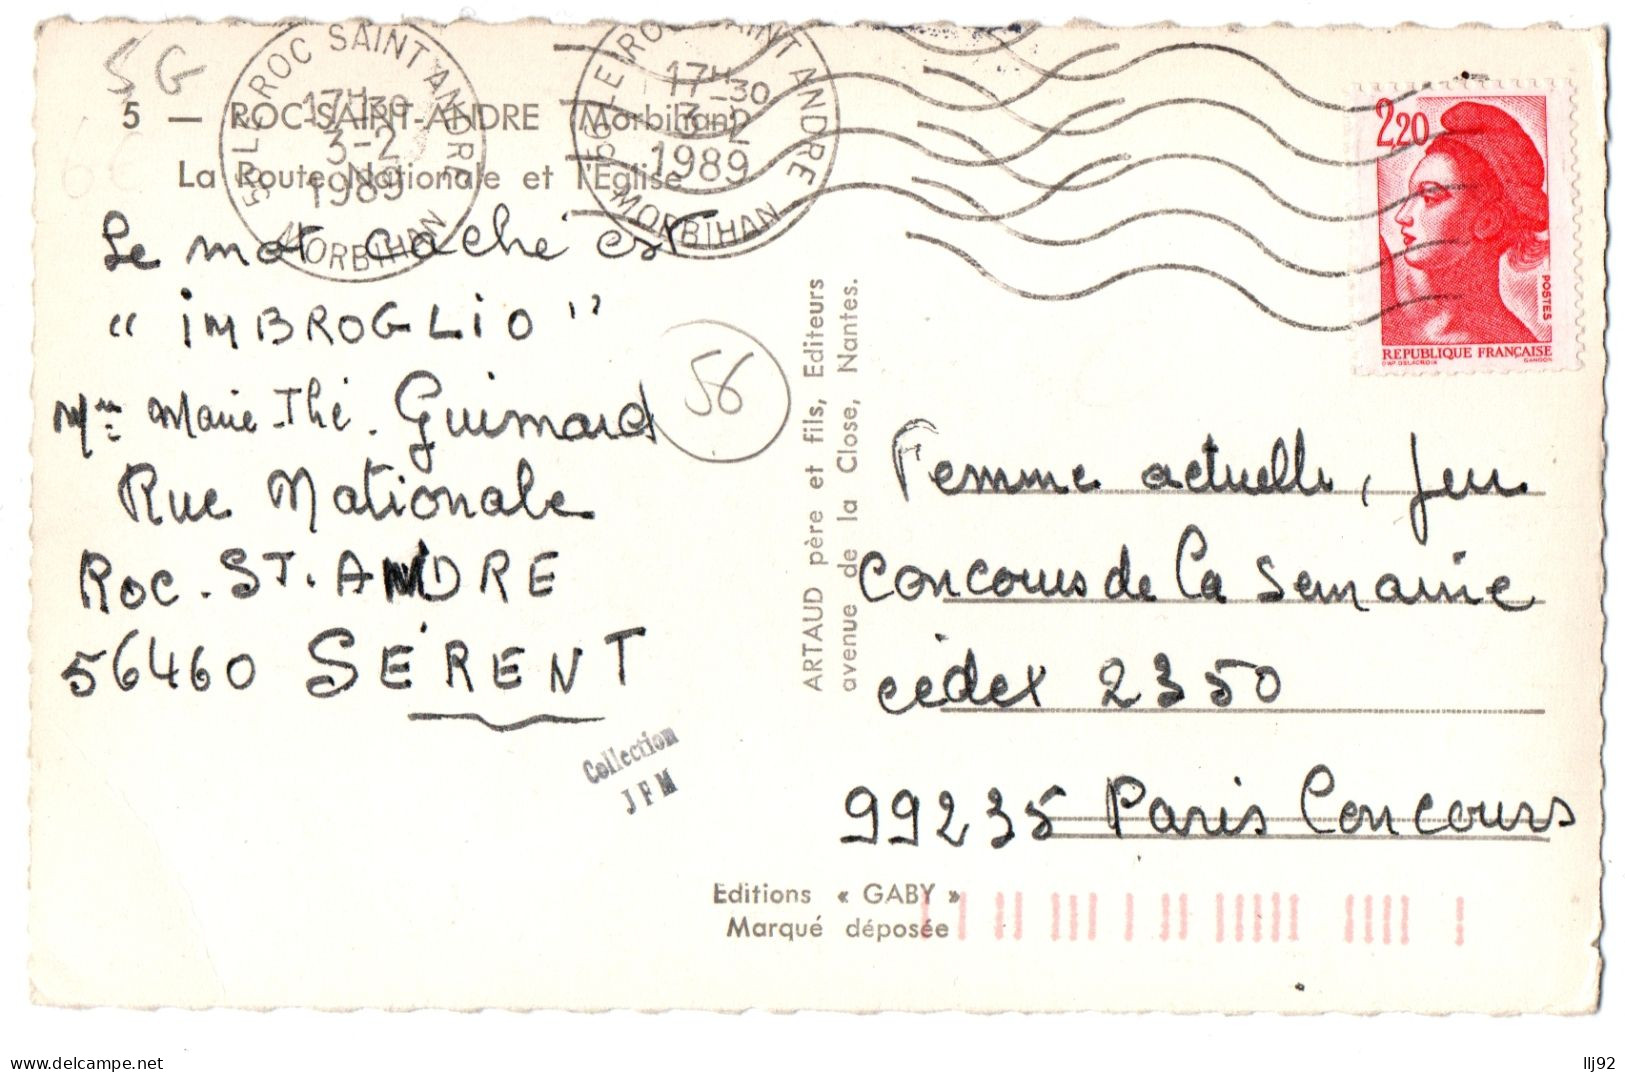 5 G
5 — ROC-SAINT-ANDRE (Morbihan)
La Route Nationale et l'Eglise
56 LE ROC SAINT ANDRE
17H30
3-2
1989
MORBIHAN
56 LE ROC SAINT ANDRE
17H-30
3-2
1989
MORBIHAN
2,20
POSTES
REPUBLIQUE FRANÇAISE
D'AP. DELACROIX GANDON
Le mot caché est
“ IMBROGLIO ”
Mme Marie-Thé. Guimard
Rue Nationale
Roc. ST. ANDRE
56460 SÉRENT
56
Collection
J F M
ARTAUD père et fils, Editeurs
avenue de la Close, Nantes.
Femme actuelle, jeu
concours de la semaine
cédex 2350
99235 Paris Concours
Editions « GABY »
Marqué déposée
www.delcampe.net
llj92